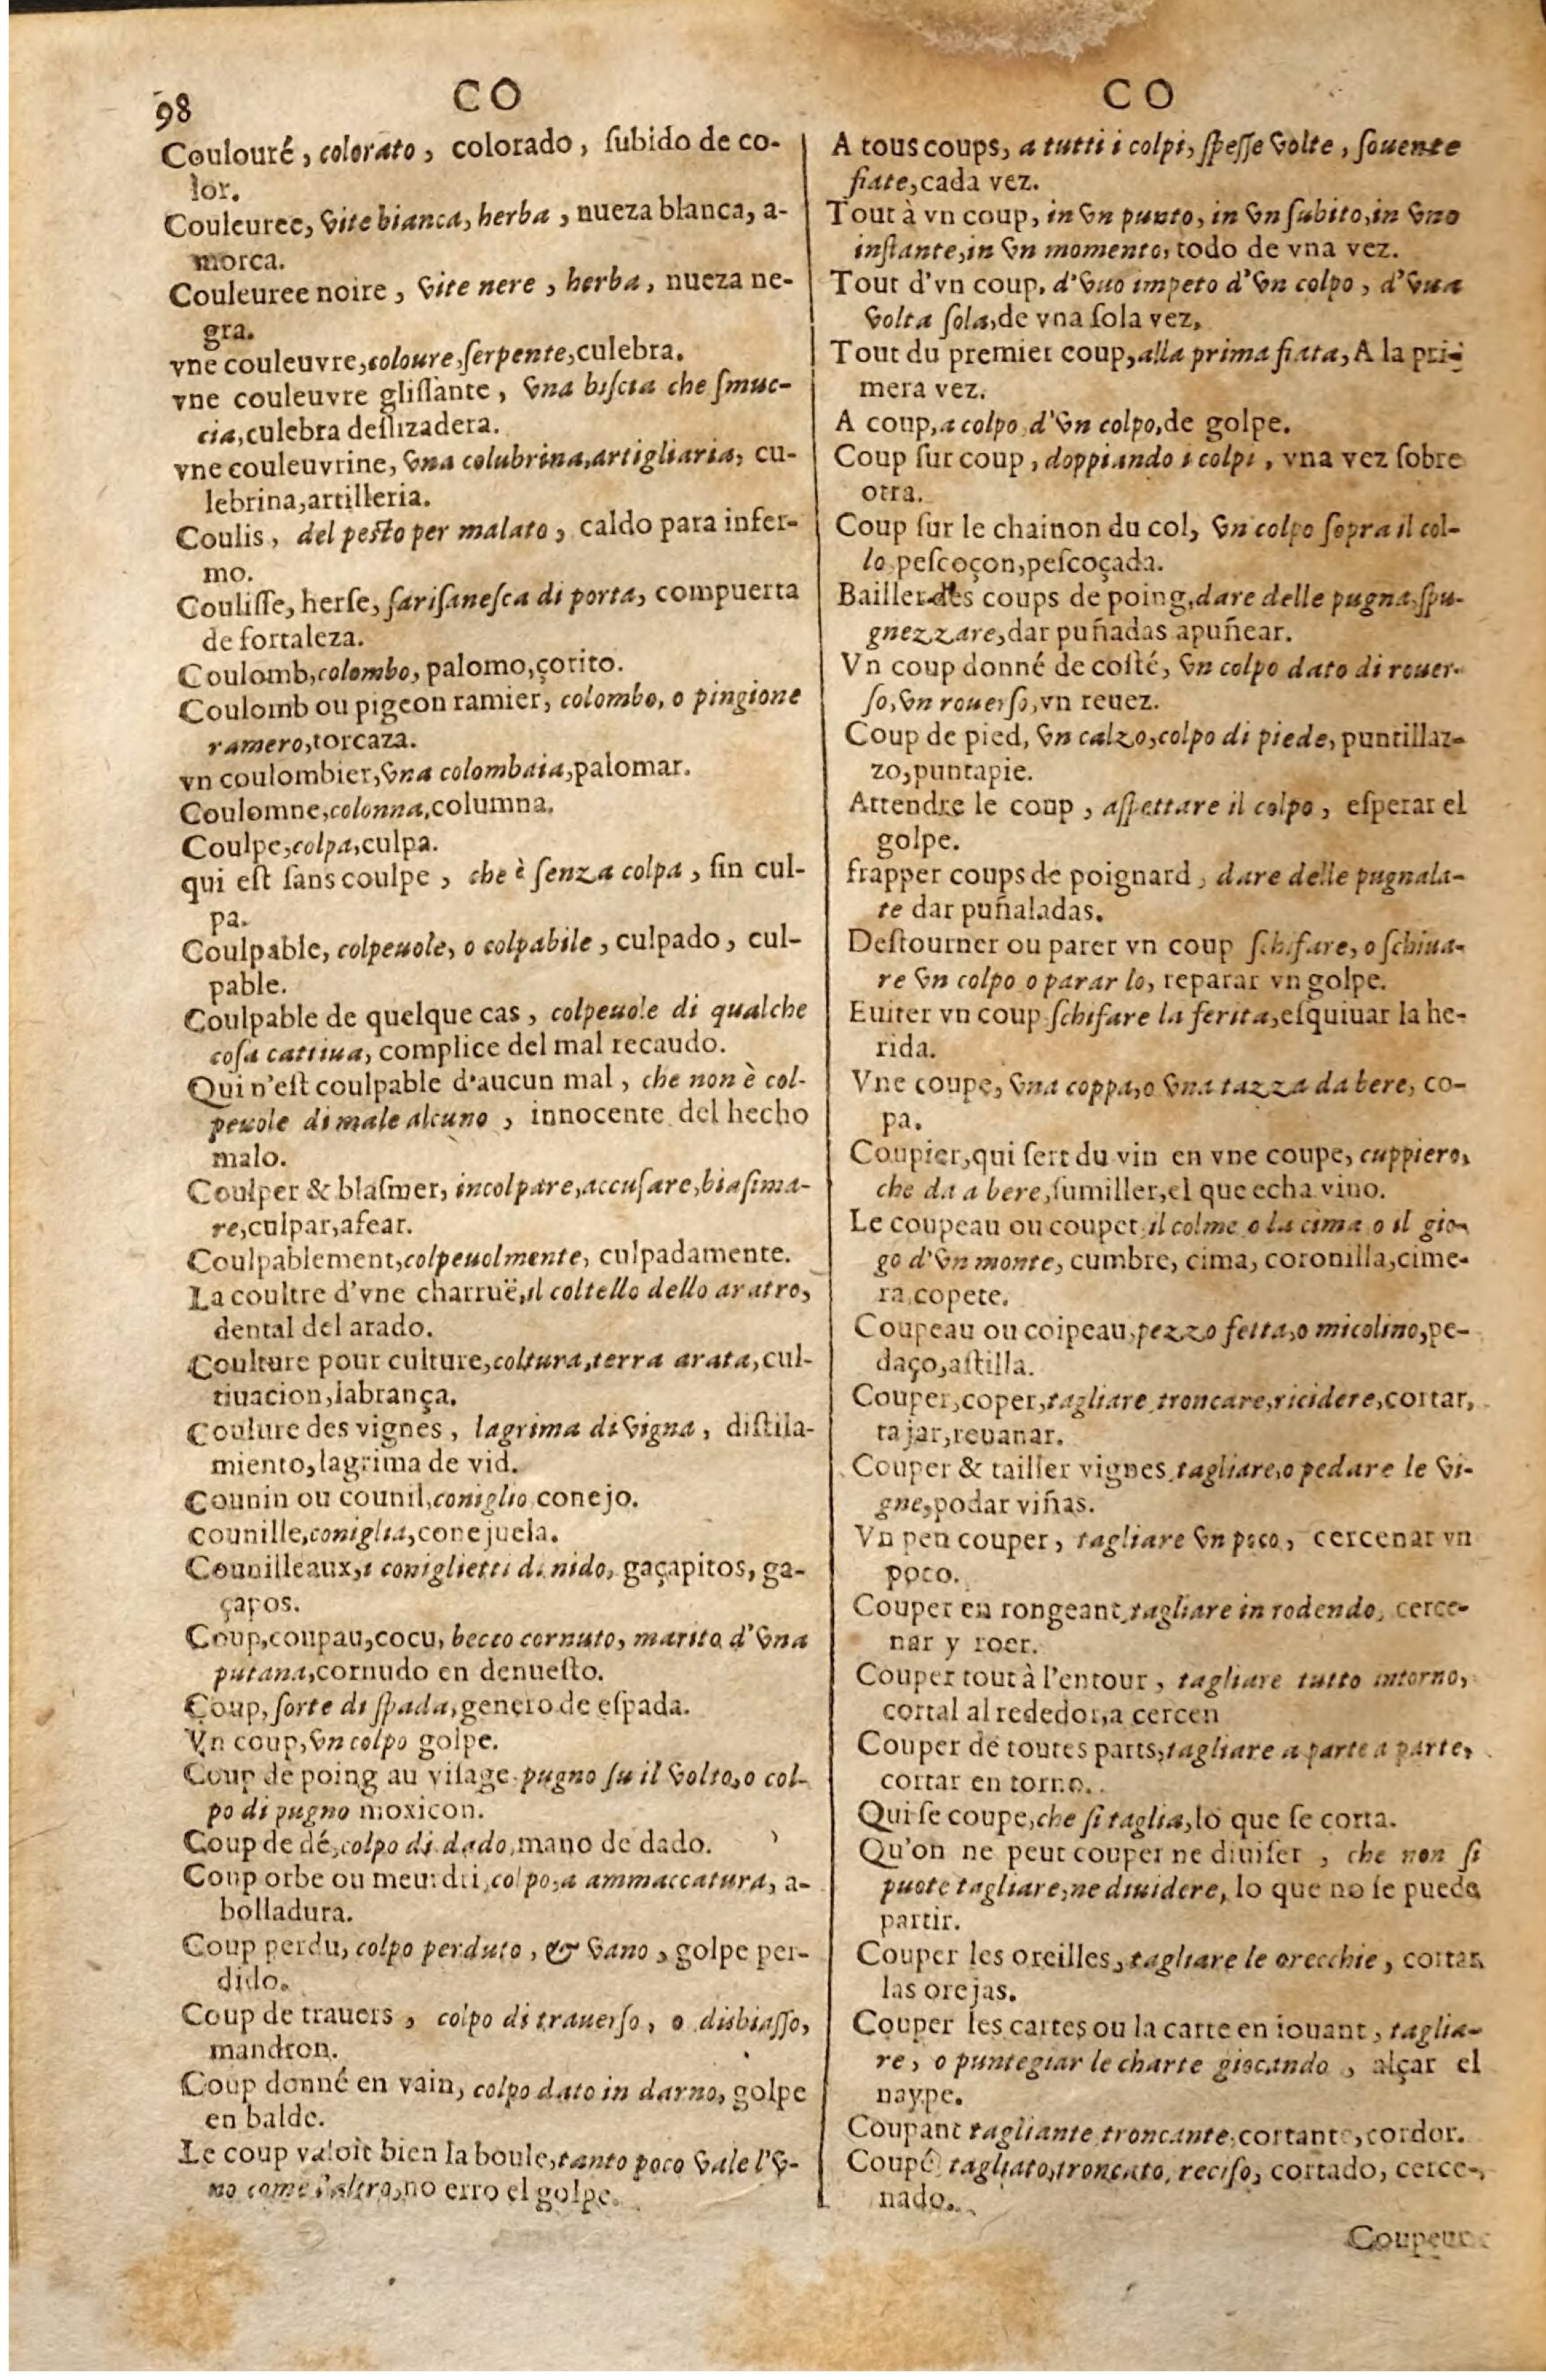 98
CO
Coulouré, colorato, colorado, ſubido de co-
lor.
Couleuree, vite bianca, herba, nueza blanca, a-
morca.
Couleuree noire, vite nere, herba, nueza ne-
gra.
vne couleuvre, coloure, ſerpente, culebra.
vne couleuvre gliſſante, vna biſcia che ſmuc-
cia, culebra deſlizadera.
vne couleuvrine, vna colubrina, artigliaria, cu-
lebrina, artilleria.
Coulis, del peſto per malato, caldo para infer-
mo.
Couliſſe, herſe, ſariſaneſca di porta, compuerta
de fortaleza.
Coulomb, colombo, palomo, çorito.
Coulomb ou pigeon ramier, colombo, o pingione
ramero, torcaza.
vn coulombier, vna colombaia, palomar.
Coulomne, colonna, columna.
Coulpe, colpa, culpa.
qui eſt ſans coulpe, che è ſenza colpa, ſin cul-
pa.
Coulpable, colpeuole, o colpabile, culpado, cul-
pable.
Coulpable de quelque cas, colpeuole di qualche
coſa cattiua, complice del mal recaudo.
Qui n'eſt coulpable d'aucun mal, che non è col-
peuole di male alcuno, innocente del hecho
malo.
Coulper & blaſmer, incolpare, accuſare, biaſima-
re, culpar, afear.
Coulpablement, colpeuolmente, culpadamente.
La coultre d'vne charruë, il coltello dello aratro,
dental del arado.
Coulture pour culture, coltura, terra arata, cul-
tiuacion, labrança.
Coulure des vignes, lagrima di vigna, diſtila-
miento, lagrima de vid.
Counin ou counil, coniglio conejo.
counille, coniglia, conejuela.
Counilleaux, i coniglietti di nido, gaçapitos, ga-
çapos.
Coup, coupau, cocu, becco cornuto, marito d'vna
putana, cornudo en denueſto.
Coup, ſorte di ſpada, genero de eſpada.
Vn coup, vn colpo golpe.
Coup de poing au viſage pugno ſu il volto, o col-
po di pugno moxicon.
Coup de dé, colpo di dado, mano de dado.
Coup orbe ou meurdri, colpo, a ammaccatura, a-
bolladura.
Coup perdu, colpo perduto, & vano, golpe per-
dido.
Coup de trauers, colpo di trauerſo, o disbiaſſo,
mandron.
Coup donné en vain, colpo dato in darno, golpe
en balde.
Le coup valoit bien la boule, tanto poco vale l'v-
no come l'altro, no erro el golpe.
CO
A tous coups, a tutti i colpi, ſpeſſe volte, ſouente
fiate, cada vez.
Tout à vn coup, in vn punto, in vn ſubito, in vno
inſtante, in vn momento, todo de vna vez.
Tout d'vn coup, d'vuo impeto d'vn colpo, d'vua
volta ſola, de vna ſola vez,
Tout du premier coup, alla prima fiata, A la pri-
mera vez.
A coup, a colpo d'vn colpo, de golpe.
Coup ſur coup, doppiando i colpi, vna vez ſobre
otra.
Coup ſur le chainon du col, vn colpo ſopra il col-
lo peſcoçon, peſcoçada.
Bailler des coups de poing, dare delle pugna, ſpu-
gnezzare, dar puñadas apuñear.
Vn coup donné de coſté, vn colpo dato di rouer-
ſo, vn rouerſo, vn reuez.
Coup de pied, vn calzo, colpo di piede, puntillaz-
zo, puntapie.
Attendre le coup, aſpettare il colpo, eſperar el
golpe.
frapper coups de poignard, dare delle pugnala-
te dar puñaladas.
Deſtourner ou parer vn coup ſchifare, o ſchiua-
re vn colpo o parar lo, reparar vn golpe.
Euiter vn coup ſchifare la ferita, eſquiuar la he-
rida.
Vne coupe, vna coppa, o vna tazza da bere, co-
pa.
Coupier, qui ſert du vin en vne coupe, cuppiero,
che da a bere, ſumiller, el que echa vino.
Le coupeau ou coupet il colme o la cima o il gio-
go d'vn monte, cumbre, cima, coronilla, cime-
ra, copete.
Coupeau ou coipeau, pezzo fetta, o micolino, pe-
daço, aſtilla.
Couper, coper, tagliare, troncare, ricidere, cortar,
tajar, reuanar.
Couper & tailler vignes, tagliare, o pedare le vi-
gne, podar viñas.
Vn peu couper, tagliare vn poco, cercenar vn
poco.
Couper en rongeant, tagliare in rodendo, cerce-
nar y roer.
Couper tout à l'entour, tagliare tutto intorno,
cortal al rededor, a cercen
Couper de toutes parts, tagliare a parte a parte,
cortar en torno.
Qui ſe coupe, che ſi taglia, lo que ſe corta.
Qu'on ne peut couper ne diuiſer, che non ſi
puote tagliare, ne diuidere, lo que no ſe puede
partir.
Couper les oreilles, tagliare le orecchie, cortar
las orejas.
Couper les cartes ou la carte en iouant, taglia-
re, o puntegiar le charte giocando, alçar el
naype.
Coupant tagliante troncante, cortante, cordor.
Coupé tagliato, troncato, reciſo, cortado, cerce-
nado.
Coupeure